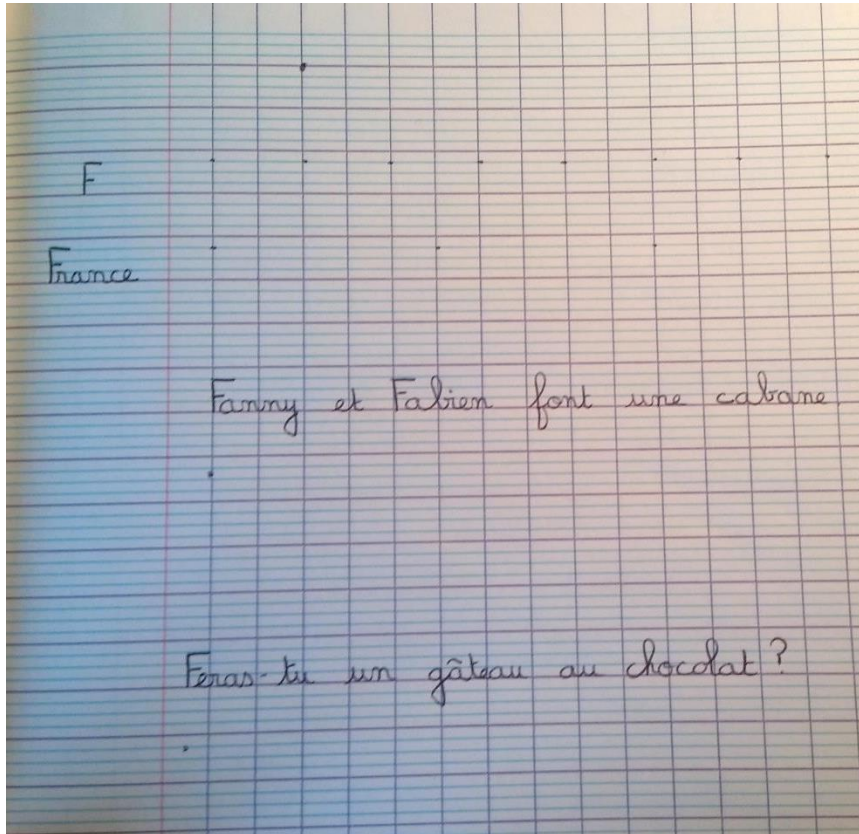 F
France
Fanny et Fabien font une cabane
Feras-tu un gâteau au chocolat ?